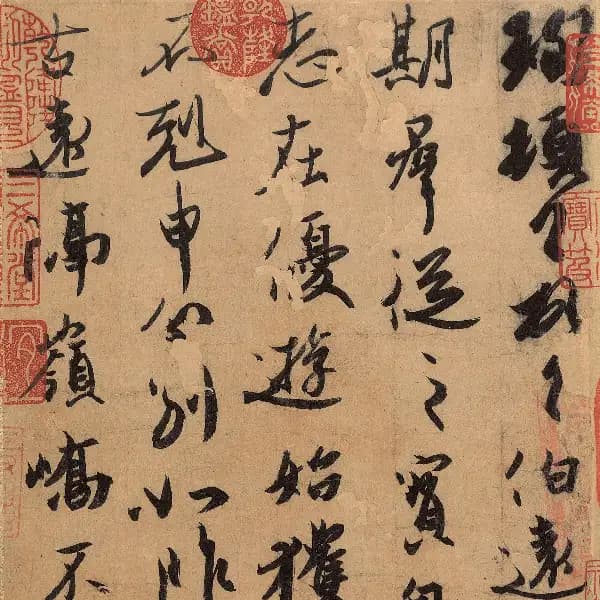 珣頓首頓首伯遠
期羣從之寶自
志在優遊始獲
不剋申分別如昨
古遠隔嶺嶠不
三希堂